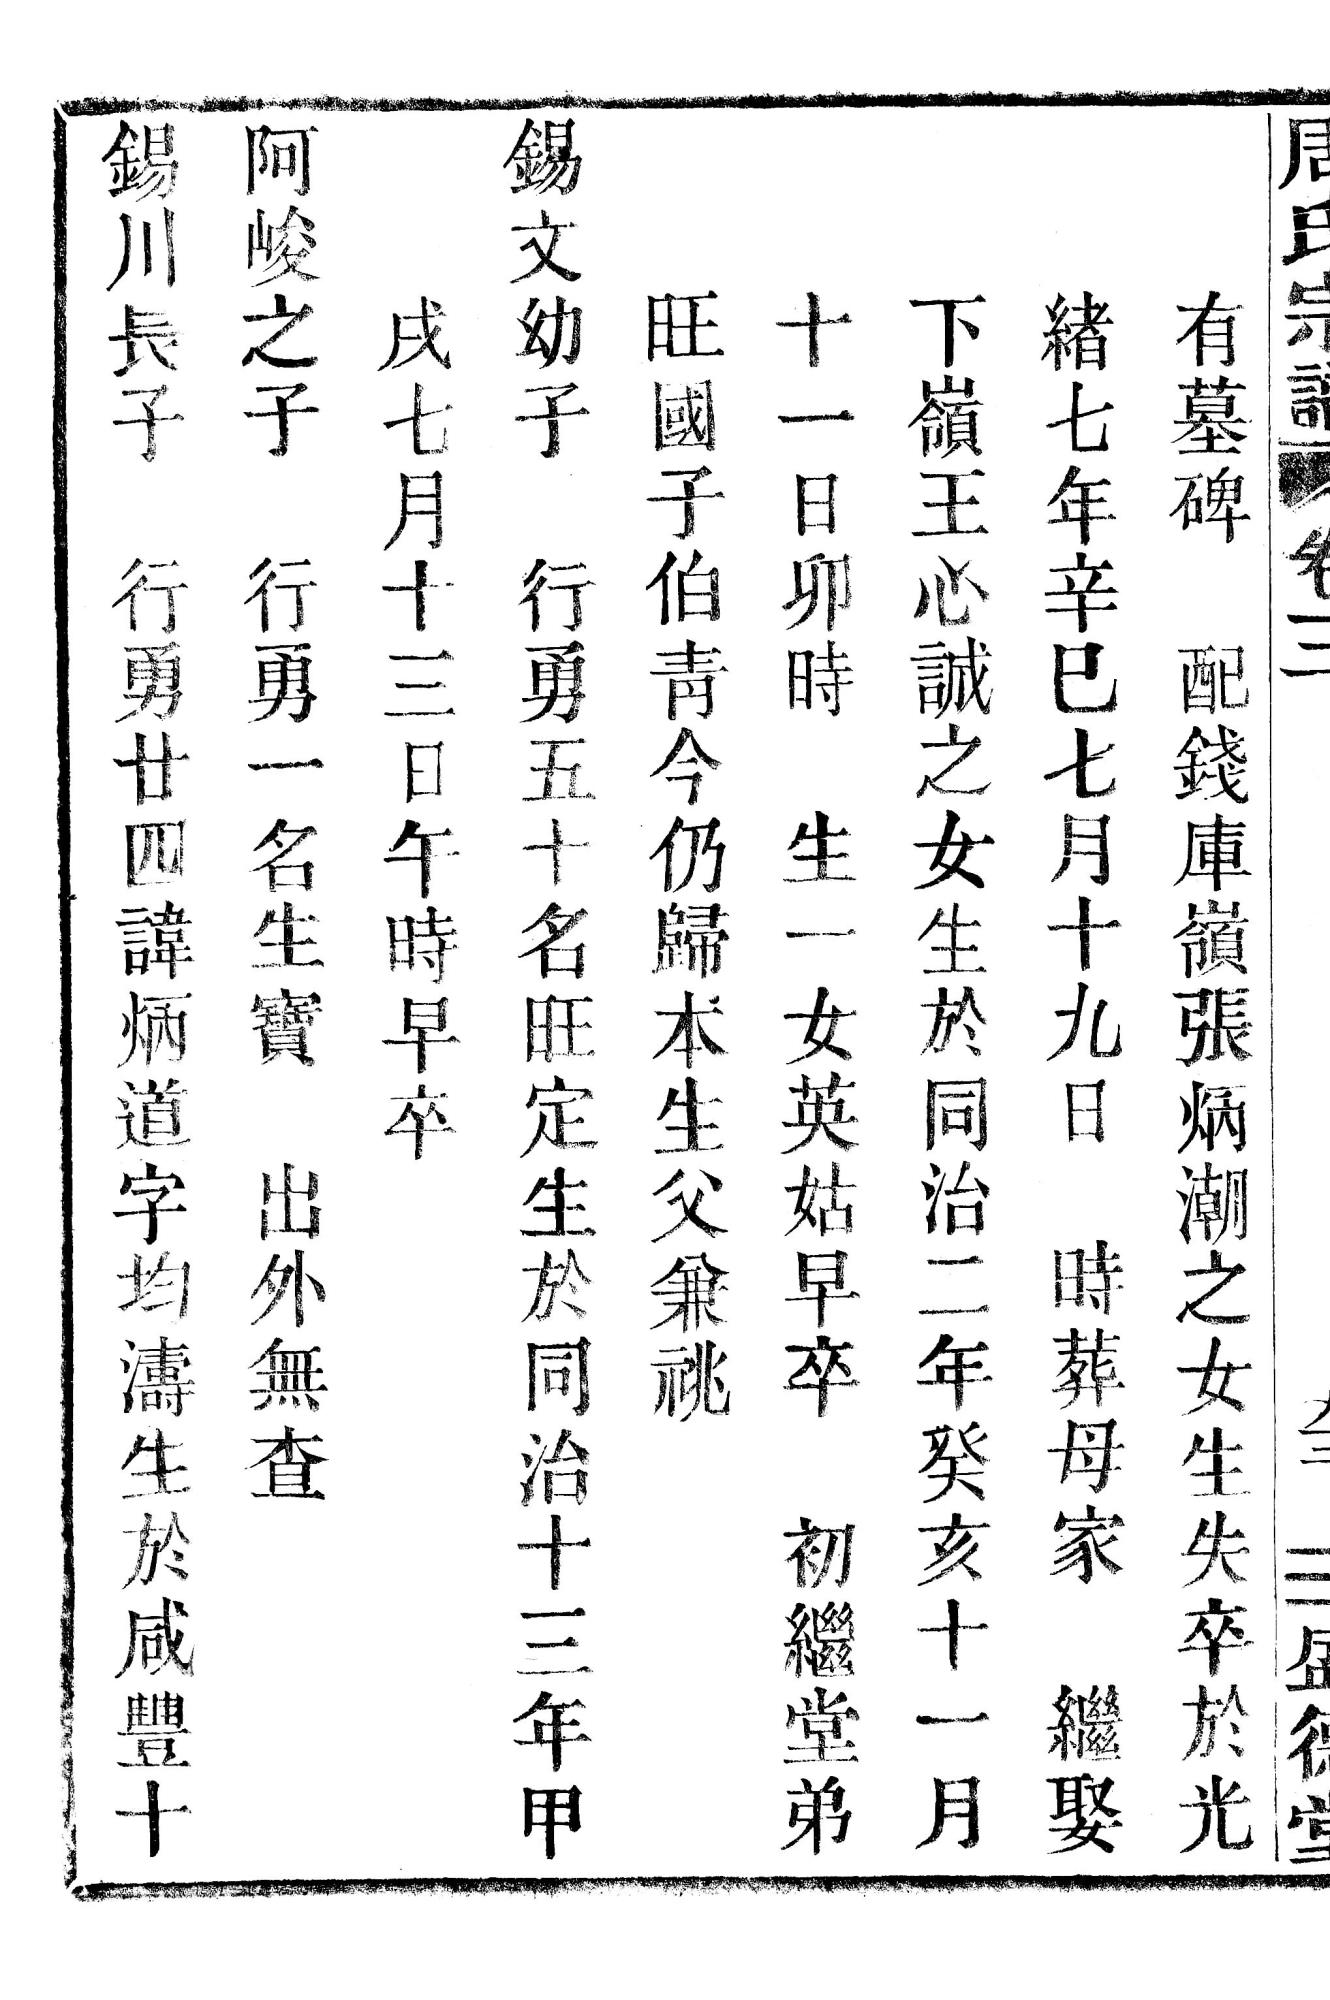 周氏宗譜 卷三 九三 盛德堂
有墓碑 配錢庫嶺張炳潮之女生失卒於光
緒七年辛巳七月十九日 時葬母家 繼娶
下嶺王心誠之女生於同治二年癸亥十一月
十一日卯時 生一女英姑早卒 初繼堂弟
旺國子伯靑今仍歸本生父兼祧
錫文幼子 行勇五十名旺定生於同治十三年甲
戌七月十三日午時早卒
阿峻之子 行勇一名生寶 出外無查
錫川長子 行勇廿四諱炳道字均濤生於咸豐十